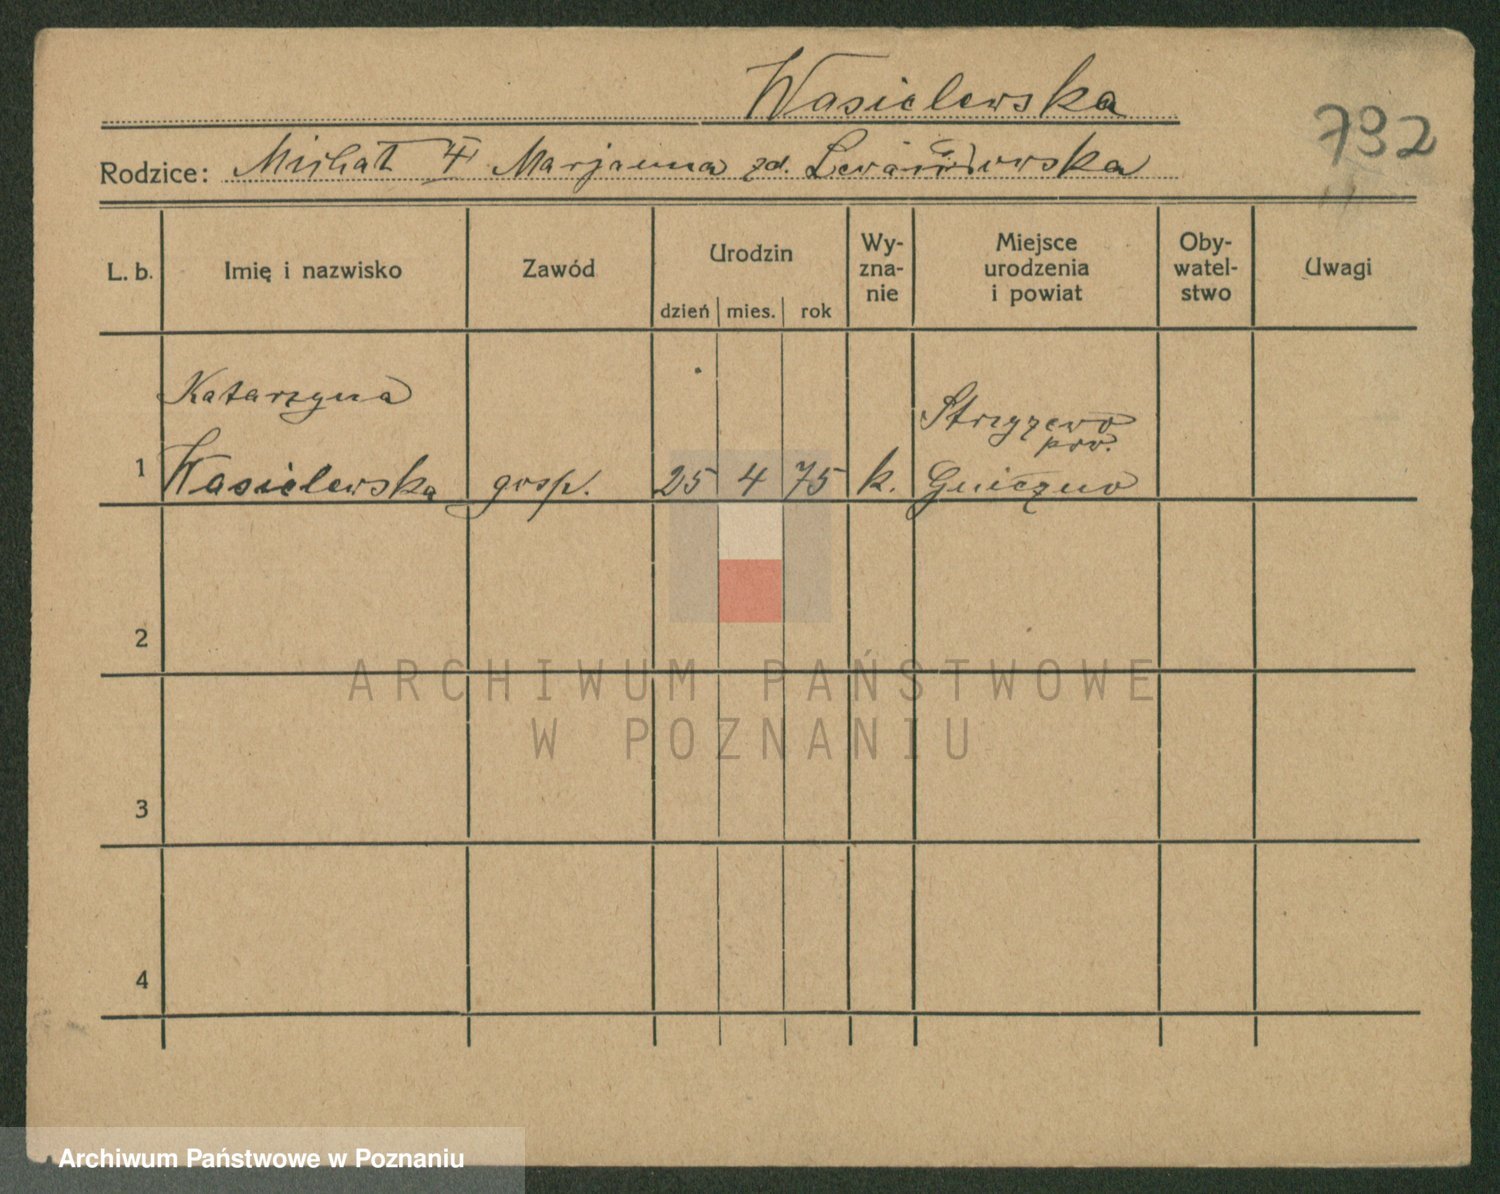 Wasielewska
732
Rodzice: Michał i Marjanna zd. Lewandowska
L. b. Imię i nazwisko Zawód Urodzin Wy-zna-nie Miejsce urodzenia i powiat Oby-watel-stwo Uwagi
dzień mies. rok
Katarzyna
1 Wasielewska gosp. 25 4 75 k. Strzyżewo pow. Gniezno
2
3
4
ARCHIWUM PAŃSTWOWE
W POZNANIU
Archiwum Państwowe w Poznaniu